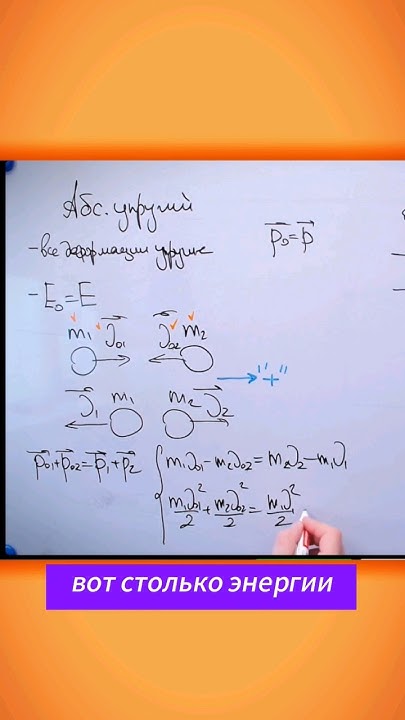 Абс. упругий
p₀ = p
- все деформации упругие
- E₀ = E
m₁ υ₀₁ υ₀₂ m₂
"+"
υ₁ m₁ m₂ υ₂
p₀₁ + p₀₂ = p₁ + p₂
m₁υ₀₁ - m₂υ₀₂ = m₂υ₂ - m₁υ₁
m₁υ₀₁²/2 + m₂υ₀₂²/2 = m₁υ₁²/2
вот столько энергии